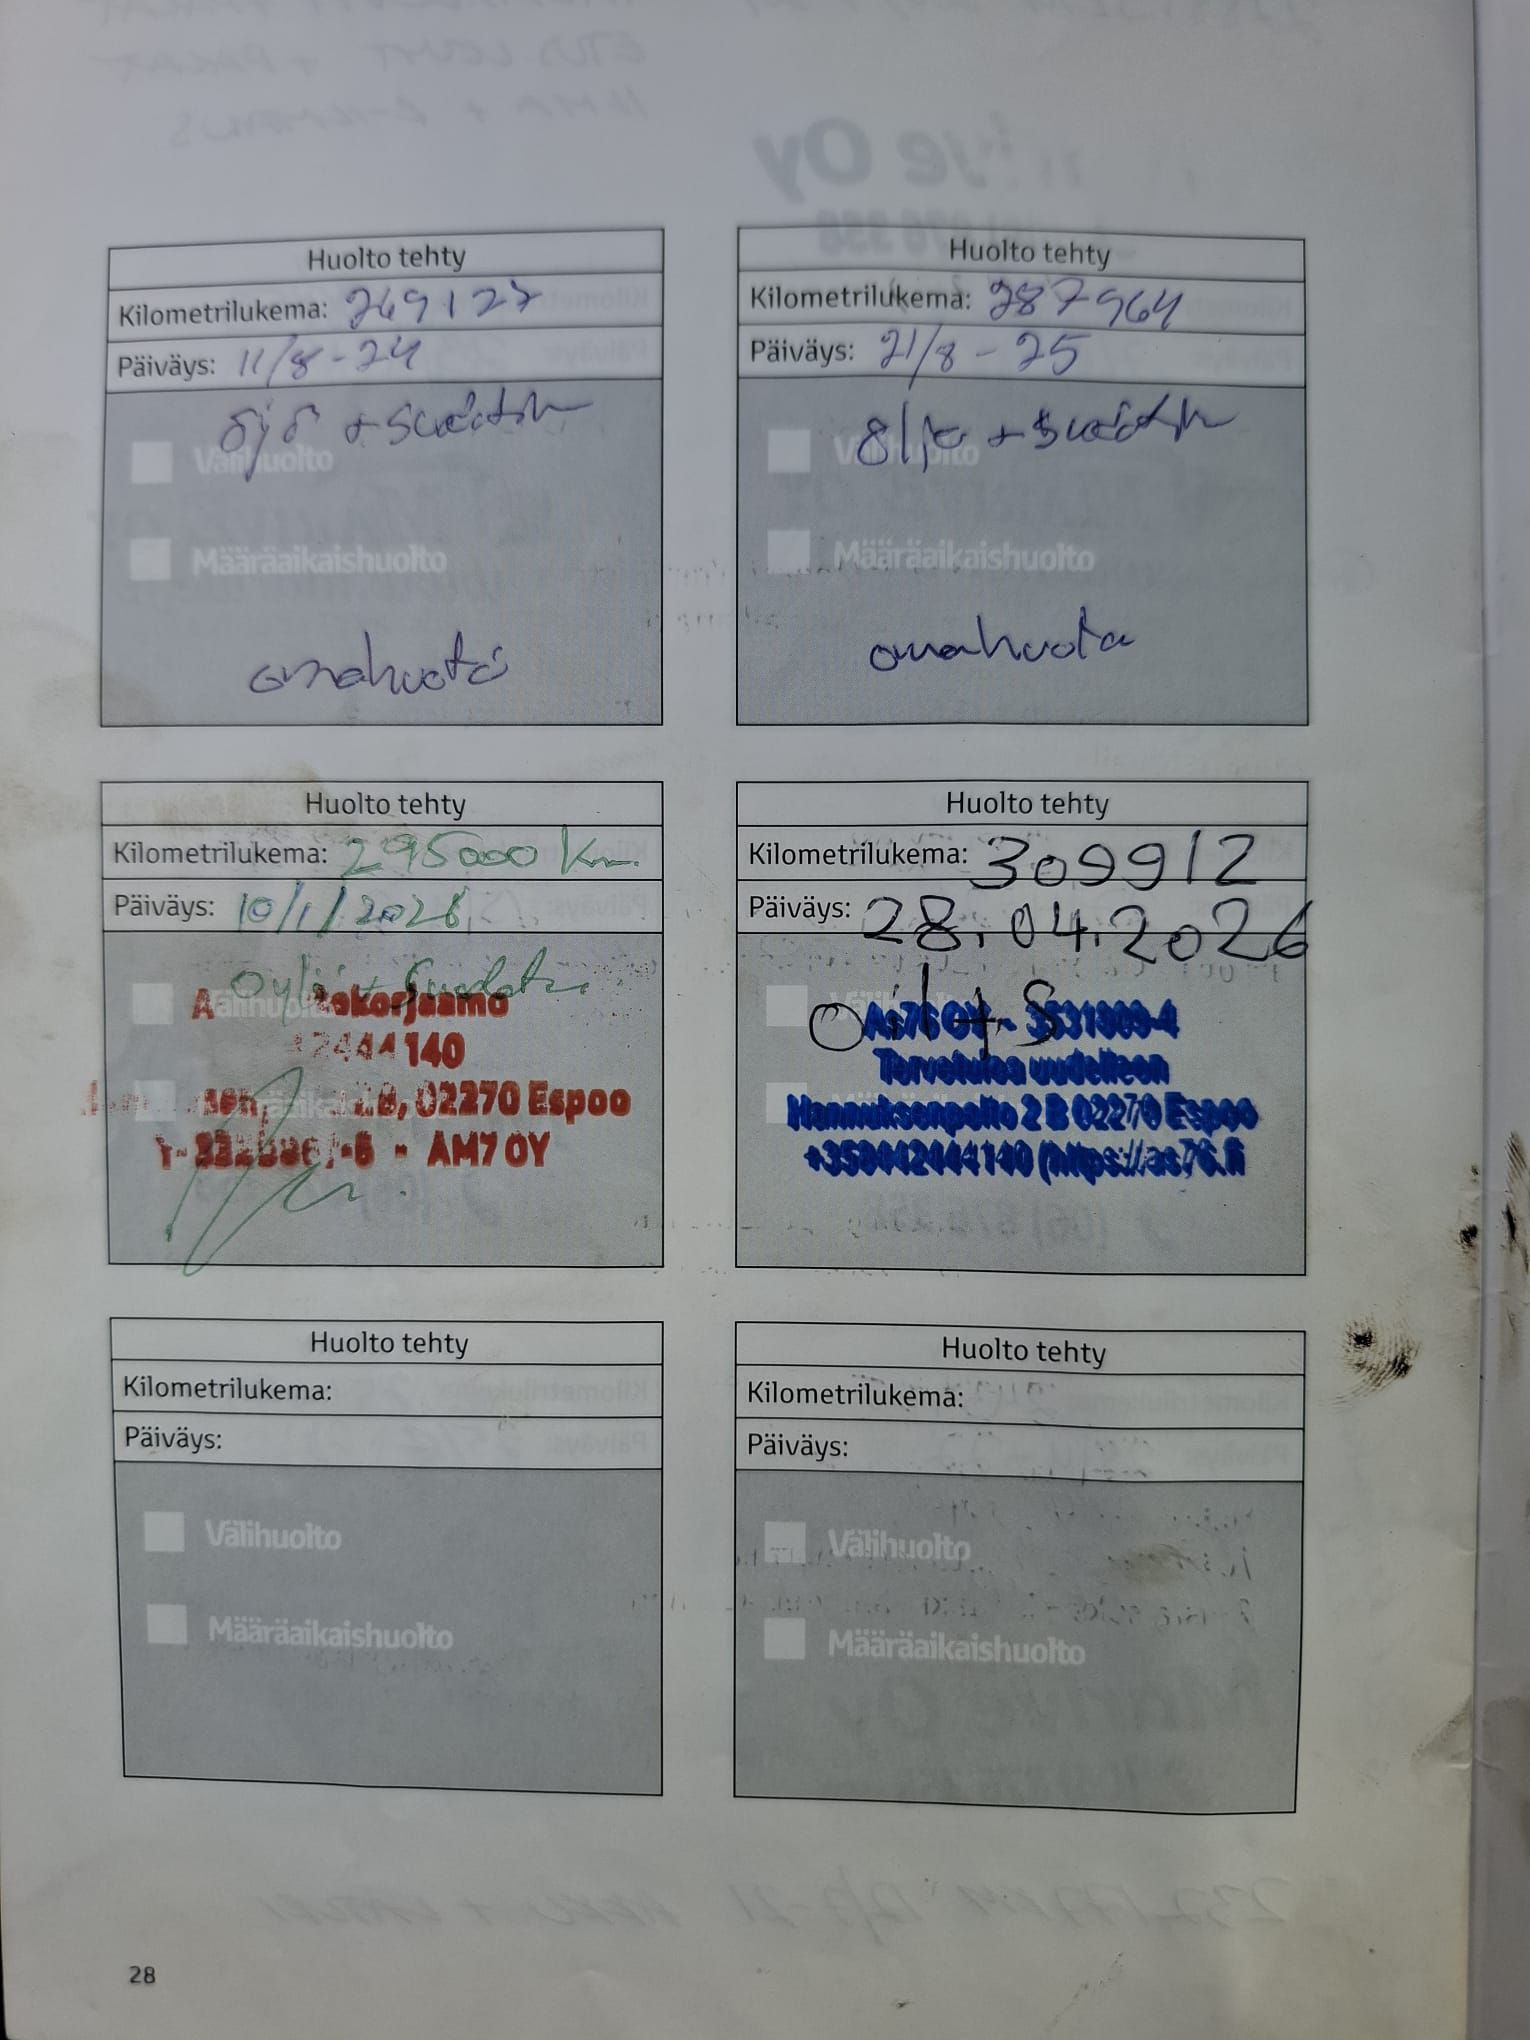 Huolto tehty
Kilometrilukema: 269127
Päiväys: 11/8-24
öljö + suodatin
Välihuolto
Määräaikaishuolto
omahuolto
Huolto tehty
Kilometrilukema: 287964
Päiväys: 21/8-25
öljy + suodatin
Välihuolto
Määräaikaishuolto
omahuolto
Huolto tehty
Kilometrilukema: 295000 Km
Päiväys: 10/1/2026
+ Suodatin
Välihuolto
2444140
02270 Espoo
- AM7 OY
Huolto tehty
Kilometrilukema: 309912
Päiväys: 28.04.2026
Oil + S
As76 OY - 3531309-4
Tervetuloa uudelleen
Hannuksenpelto 2 B 02270 Espoo
+358442444140 (https://as76.fi
Huolto tehty
Kilometrilukema:
Päiväys:
Välihuolto
Määräaikaishuolto
Huolto tehty
Kilometrilukema:
Päiväys:
Välihuolto
Määräaikaishuolto
28